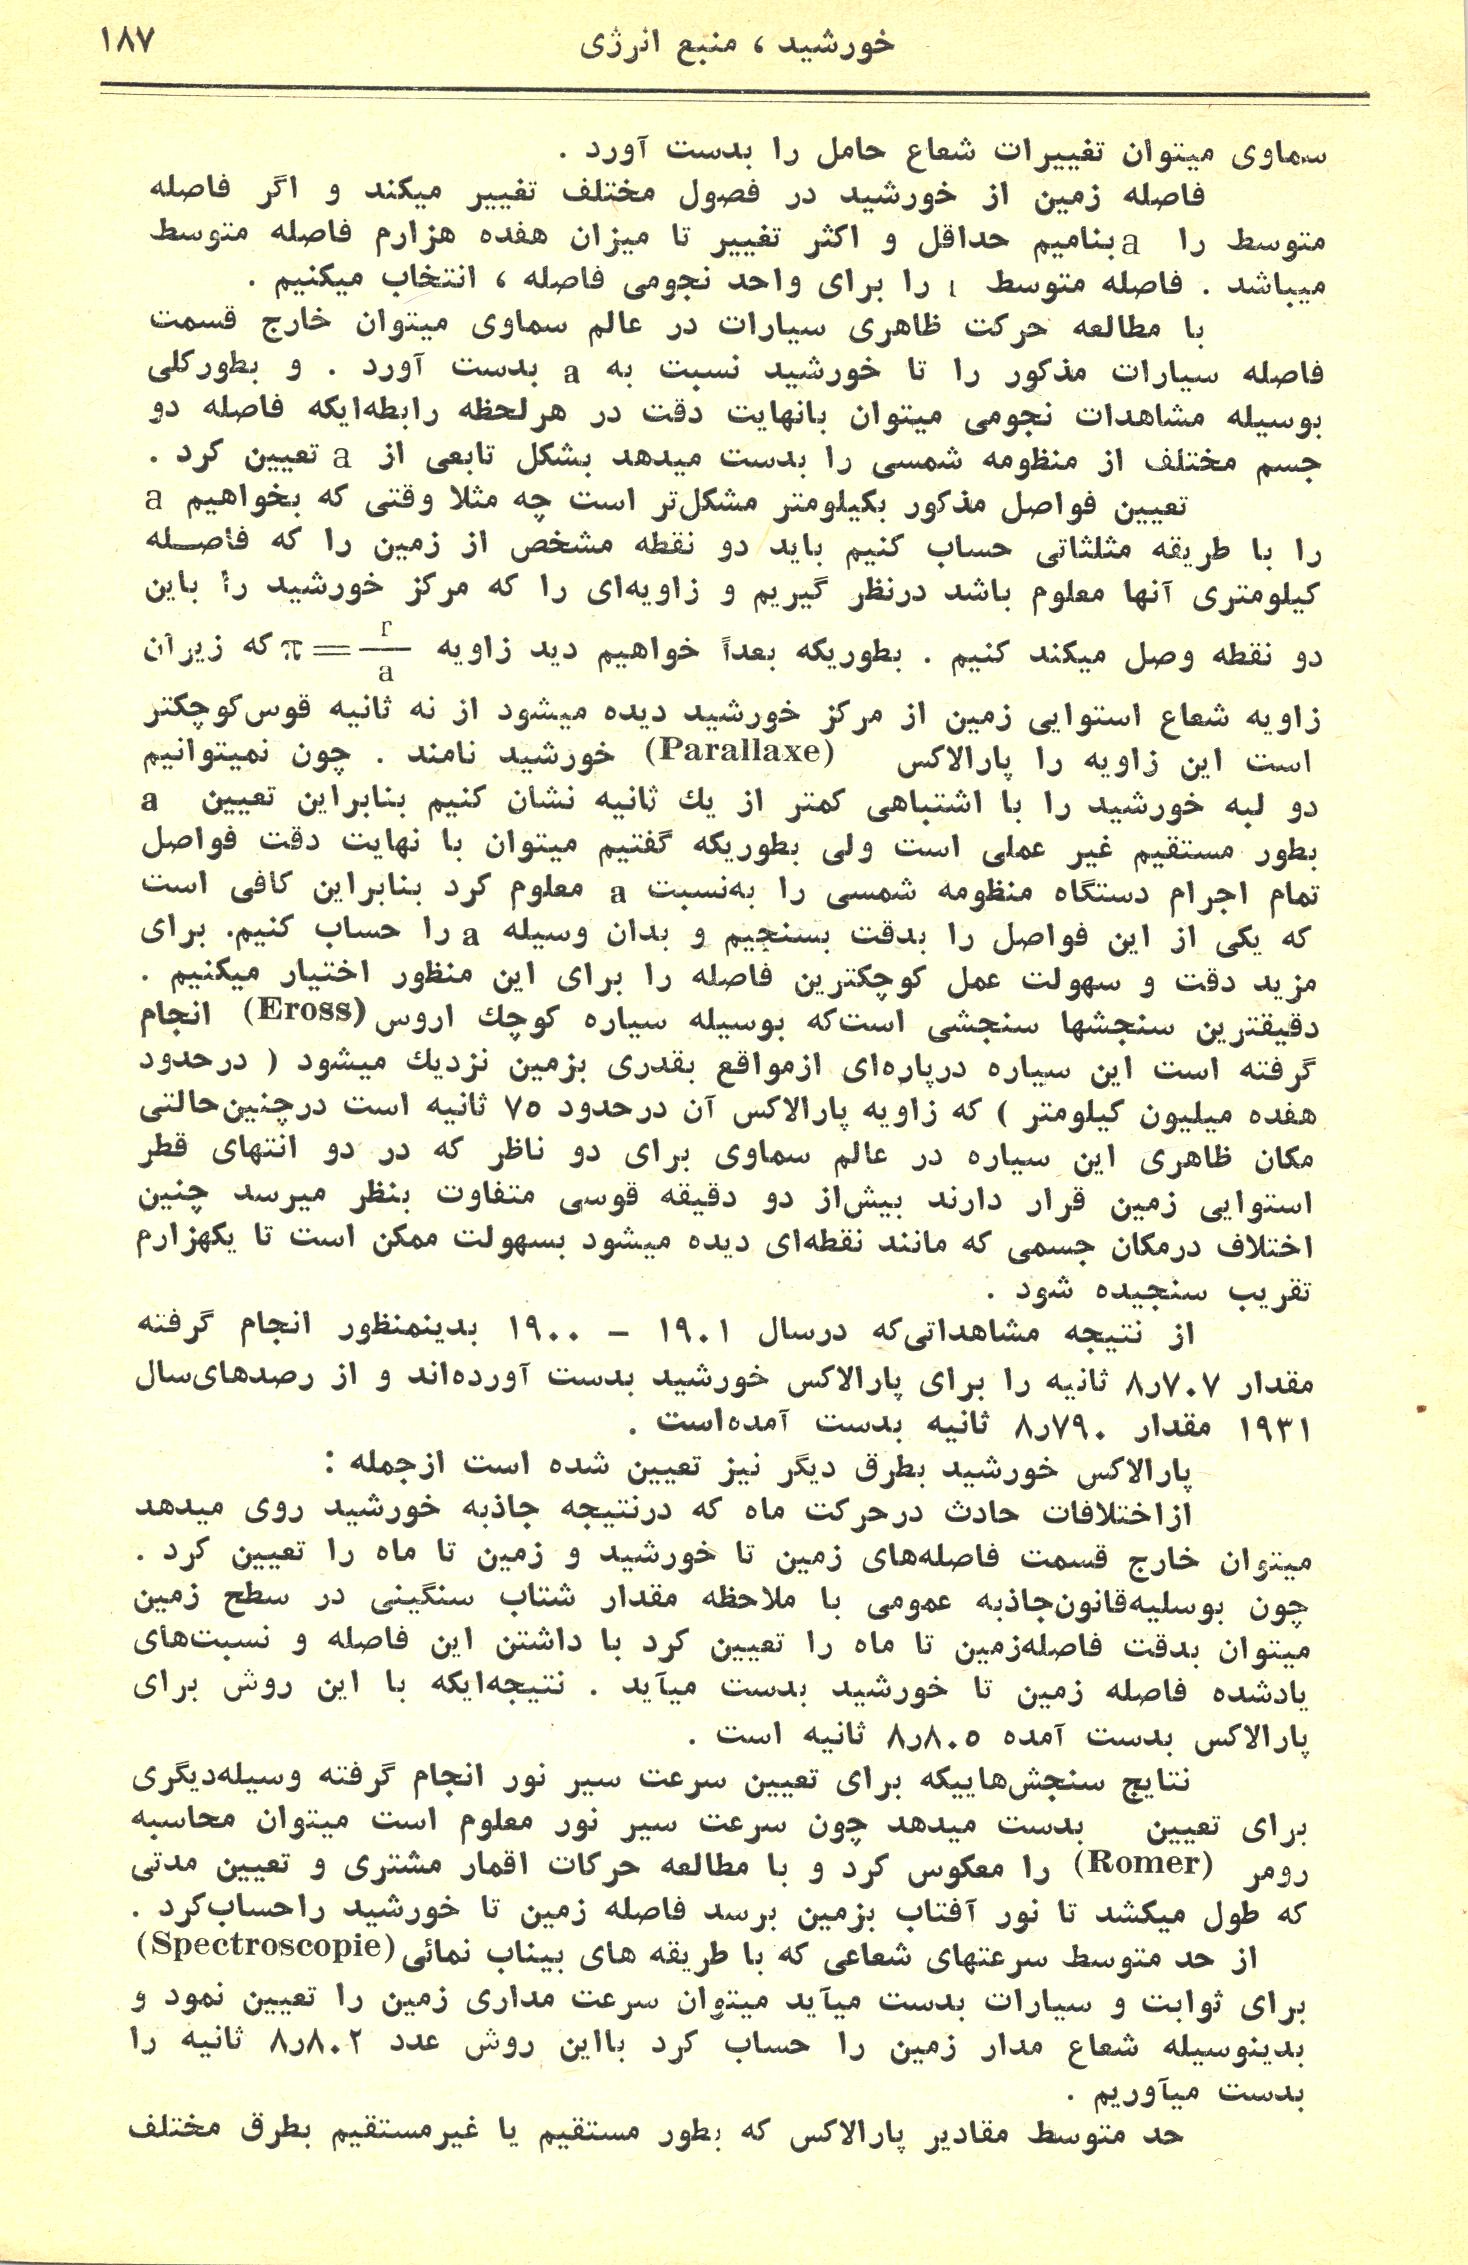 خورشید ، منبع انرژی ۱۸۷
سماوی میتوان تغییرات شعاع حامل را بدست آورد .
فاصله زمین از خورشید در فصول مختلف تغییر میکند و اگر فاصله
متوسط را a بنامیم حداقل و اکثر تغییر تا میزان هفده هزارم فاصله متوسط
میباشد . فاصله متوسط را برای واحد نجومی فاصله ، انتخاب میکنیم .
با مطالعه حرکت ظاهری سیارات در عالم سماوی میتوان خارج قسمت
فاصله سیارات مذکور را تا خورشید نسبت به a بدست آورد . و بطورکلی
بوسیله مشاهدات نجومی میتوان بانهایت دقت در هرلحظه رابطه‌ایکه فاصله دو
جسم مختلف از منظومه شمسی را بدست میدهد بشکل تابعی از a تعیین کرد .
تعیین فواصل مذکور بکیلومتر مشکل‌تر است چه مثلا وقتی که بخواهیم a
را با طریقه مثلثاتی حساب کنیم باید دو نقطه مشخص از زمین را که فاصله
کیلومتری آنها معلوم باشد درنظر گیریم و زاویه‌ای را که مرکز خورشید را باین
دو نقطه وصل میکند کنیم . بطوریکه بعداً خواهیم دید زاویه π = r/a که زیرآن
زاویه شعاع استوایی زمین از مرکز خورشید دیده میشود از نه ثانیه قوس‌کوچکتر
است این زاویه را پارالاکس (Parallaxe) خورشید نامند . چون نمیتوانیم
دو لبه خورشید را با اشتباهی کمتر از یك ثانیه نشان کنیم بنابراین تعیین a
بطور مستقیم غیر عملی است ولی بطوریکه گفتیم میتوان با نهایت دقت فواصل
تمام اجرام دستگاه منظومه شمسی را به‌نسبت a معلوم کرد بنابراین کافی است
که یکی از این فواصل را بدقت بسنجیم و بدان وسیله a را حساب کنیم. برای
مزید دقت و سهولت عمل کوچکترین فاصله را برای این منظور اختیار میکنیم .
دقیقترین سنجشها سنجشی است‌که بوسیله سیاره کوچك اروس (Eross) انجام
گرفته است این سیاره درپاره‌ای ازمواقع بقدری بزمین نزدیك میشود ( درحدود
هفده میلیون کیلومتر ) که زاویه پارالاکس آن درحدود ۷۵ ثانیه است درچنین‌حالتی
مکان ظاهری این سیاره در عالم سماوی برای دو ناظر که در دو انتهای قطر
استوایی زمین قرار دارند بیش‌از دو دقیقه قوسی متفاوت بنظر میرسد چنین
اختلاف درمکان جسمی که مانند نقطه‌ای دیده میشود بسهولت ممکن است تا یکهزارم
تقریب سنجیده شود .
از نتیجه مشاهداتی‌که درسال ۱۹۰۱ – ۱۹۰۰ بدینمنظور انجام گرفته
مقدار ۸ر۷۰۷ ثانیه را برای پارالاکس خورشید بدست آورده‌اند و از رصدهای‌سال
۱۹۳۱ مقدار ۸ر۷۹۰ ثانیه بدست آمده‌است .
پارالاکس خورشید بطرق دیگر نیز تعیین شده است ازجمله :
ازاختلافات حادث درحرکت ماه که درنتیجه جاذبه خورشید روی میدهد
میتوان خارج قسمت فاصله‌های زمین تا خورشید و زمین تا ماه را تعیین کرد .
چون بوسلیه‌قانون‌جاذبه عمومی با ملاحظه مقدار شتاب سنگینی در سطح زمین
میتوان بدقت فاصله‌زمین تا ماه را تعیین کرد با داشتن این فاصله و نسبت‌های
یادشده فاصله زمین تا خورشید بدست میآید . نتیجه‌ایکه با این روش برای
پارالاکس بدست آمده ۸ر۸۰۵ ثانیه است .
نتایج سنجش‌هاییکه برای تعیین سرعت سیر نور انجام گرفته وسیله‌دیگری
برای تعیین بدست میدهد چون سرعت سیر نور معلوم است میتوان محاسبه
رومر (Romer) را معکوس کرد و با مطالعه حرکات اقمار مشتری و تعیین مدتی
که طول میکشد تا نور آفتاب بزمین برسد فاصله زمین تا خورشید راحساب‌کرد .
از حد متوسط سرعتهای شعاعی که با طریقه های بیناب نمائی (Spectroscopie)
برای ثوابت و سیارات بدست میآید میتوان سرعت مداری زمین را تعیین نمود و
بدینوسیله شعاع مدار زمین را حساب کرد بااین روش عدد ۸ر۸۰۲ ثانیه را
بدست میآوریم .
حد متوسط مقادیر پارالاکس که بطور مستقیم یا غیرمستقیم بطرق مختلف